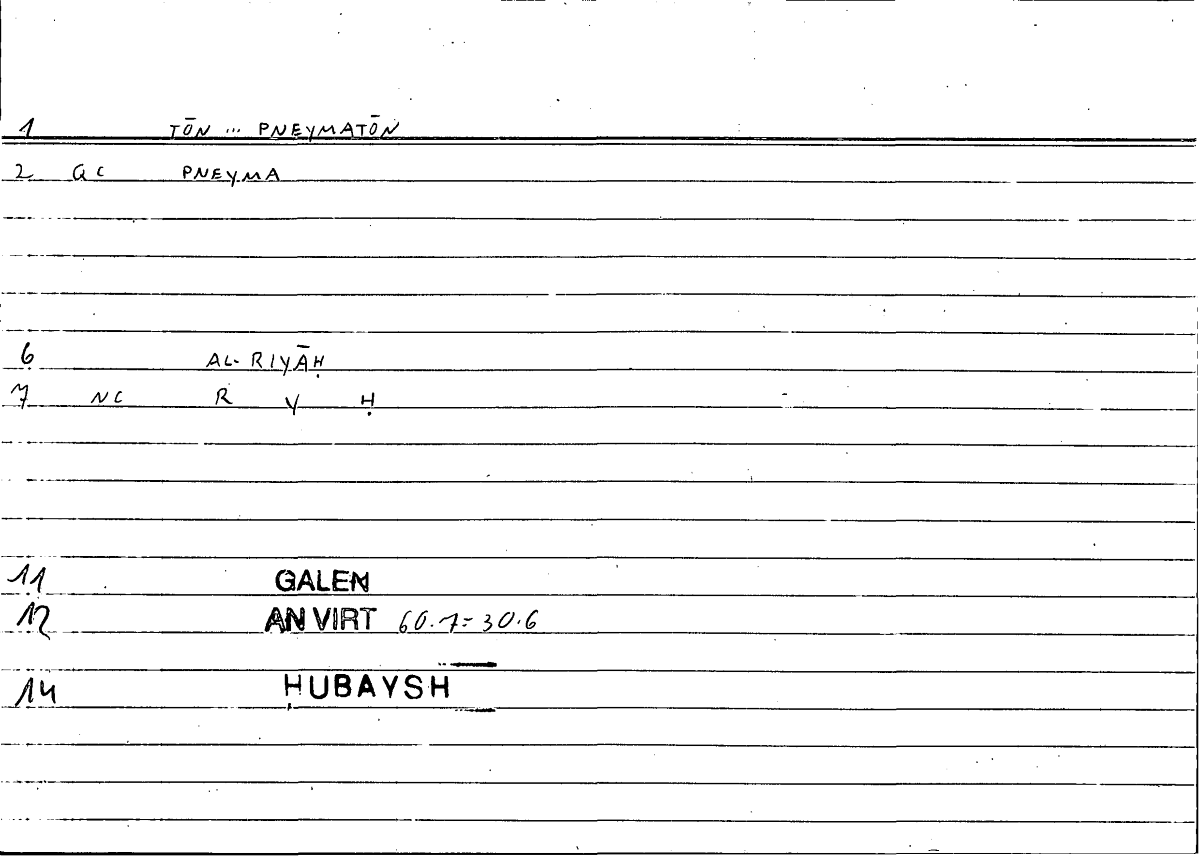 1 TŌN ... PNEYMATŌN
2 QC PNEYMA
6 AL-RIYĀḤ
7 NC R Y Ḥ
11 GALEN
12 AN VIRT 60.7=30.6
14 ḤUBAYSH